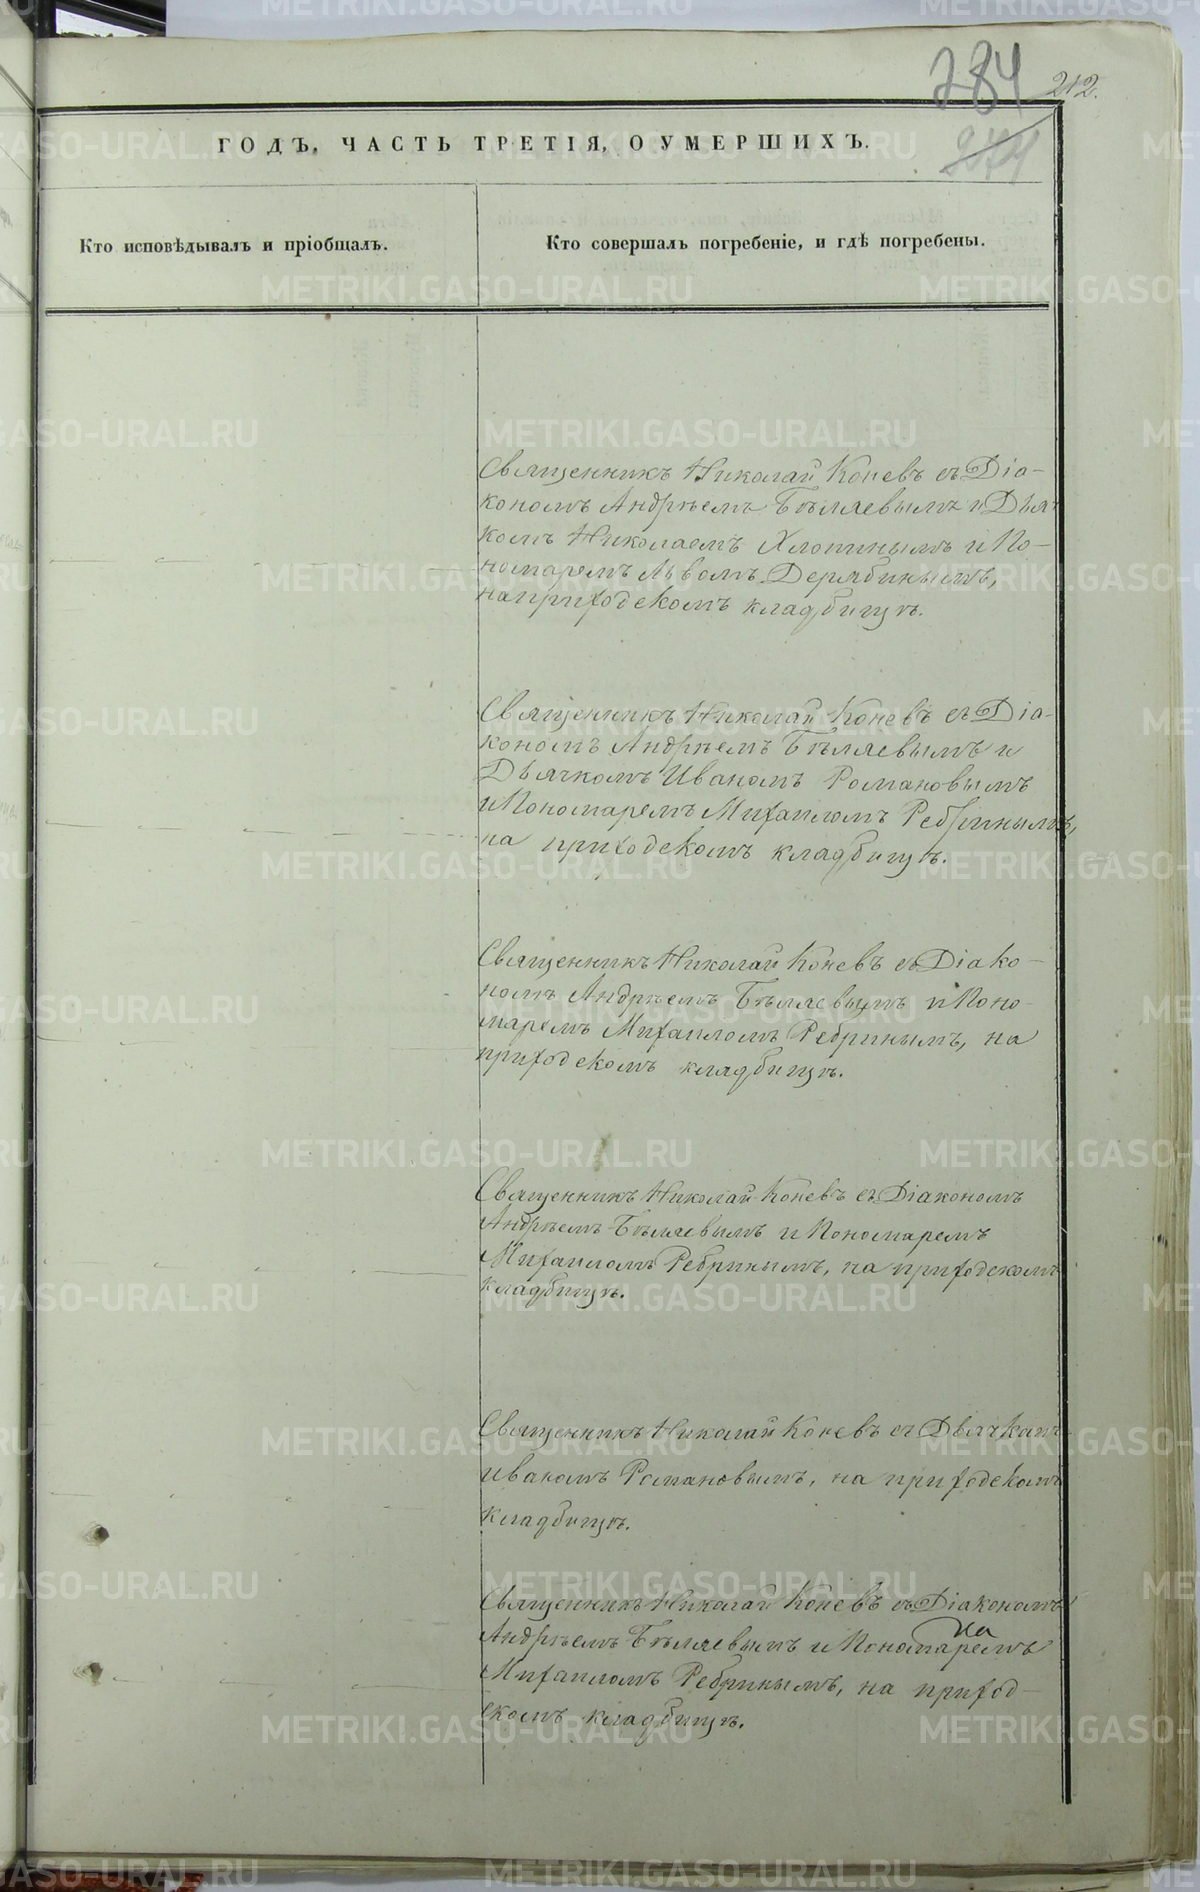 284
212.
274
ГОДЪ, ЧАСТЬ ТРЕТІЯ, О УМЕРШИХЪ.
Кто исповѣдывалъ и пріобщалъ.
Кто совершалъ погребеніе, и гдѣ погребены.
Священникъ Николай Коневъ съ Діа-
кономъ Андрѣемъ Бѣляевымъ и Дьяч
комъ Николаемъ Хлопинымъ и По-
номаремъ Львомъ Дерябинымъ,
на приходскомъ кладбищѣ.
Священникъ Николай Коневъ съ Діа-
кономъ Андрѣемъ Бѣляевымъ и
Дьячкомъ Иваномъ Романовымъ
и Пономаремъ Михаиломъ Ребринымъ,
на приходскомъ кладбищѣ.
Священникъ Николай Коневъ съ Діако-
номъ Андрѣемъ Бѣляевымъ и Поно-
маремъ Михаиломъ Ребринымъ, на
приходскомъ кладбищѣ.
Священникъ Николай Коневъ съ Діакономъ
Андрѣемъ Бѣляевымъ и Пономаремъ
Михаиломъ Ребринымъ, на приходскомъ
кладбищѣ.
Священникъ Николай Коневъ съ Дьячкомъ
Иваномъ Романовымъ, на приходскомъ
кладбищѣ.
Священникъ Николай Коневъ съ Діакономъ
Андрѣемъ Бѣляевымъ и Пономаремъ
Михаиломъ Ребринымъ, на приход-
скомъ кладбищѣ.
METRIKI.GASO-URAL.RU